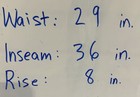 Waist: 29 in.
Inseam: 36 in.
Rise: 8 in.